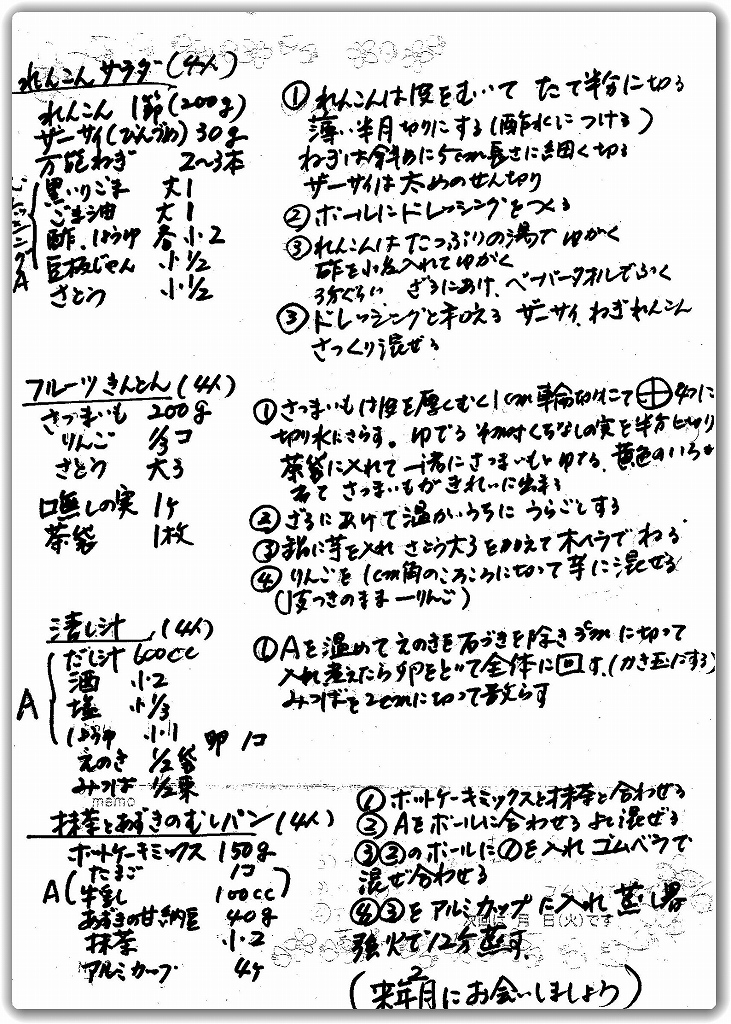 れんこんサラダー(4人)
れんこん 1節(200g)
ザーサイ(びんづめ)30g
万能ねぎ 2〜3本
ドレッシングA
黒いりごま 大1
ごま油 大1
酢、しょうゆ 各小2
豆板じゃん 小1/2
さとう 小1/2
①れんこんは皮をむいて たて半分に切る
薄い半月切りにする(酢水につける)
ねぎは斜めに5cm長さに細く切る
ザーサイは太めのせん切り
②ボールにドレッシングをつくる
③れんこんはたっぷりの湯でゆがく
酢を小さじ入れてゆがく
3分ぐらい ざるにあけ、ペーパータオルでふく
③ドレッシングと和える ザーサイ、ねぎれんこん
さっくり混ぜる
フルーツきんとん(4人)
さつまいも 200g
りんご 1/3コ
さとう 大3
口無しの実 1ケ
茶袋 1枚
①さつまいもは皮を厚くむく1cm輪切りにて 4つに
切り水にさらす。ゆでる その時くちなしの実を半分に切り
茶袋に入れて一緒にさつまいもとゆでる、黄色のいろが
出て さつまいもがきれいに出来る
②ざるにあけて温かいうちに うらごしする
③鍋に芋を入れ さとう大3を加えて木ヘラでねる
④りんごを1cm角のころころに切って芋に混ぜる
(皮つきのままーりんご)
清し汁 (4人)
A
だし汁 600cc
酒 小2
塩 小1/3
しょうゆ 小1
卵 1コ
えのき 1/2袋
みつば 1/2束
①Aを温めてえのきを石づきを除き3cmに切って
入れ煮えたら卵をといて全体に回す。(かき玉にする)
みつばを2cmに切って散らす
memo
抹茶とあずきのむしパン(4人)
ホットケーキミックス 150g
A
たまご 1コ
牛乳 100cc
あずきの甘納豆 40g
抹茶 小2
アルミカップ 4ケ
①ホットケーキミックスと抹茶と合わせる
②Aをボールに合わせる よく混ぜる
③②のボールに①を入れ ゴムベラで
混ぜ合わせる
④③をアルミカップに入れ 蒸し器
強火で12分蒸す。
月 日(火)です
(来年2月にお会いしましょう)